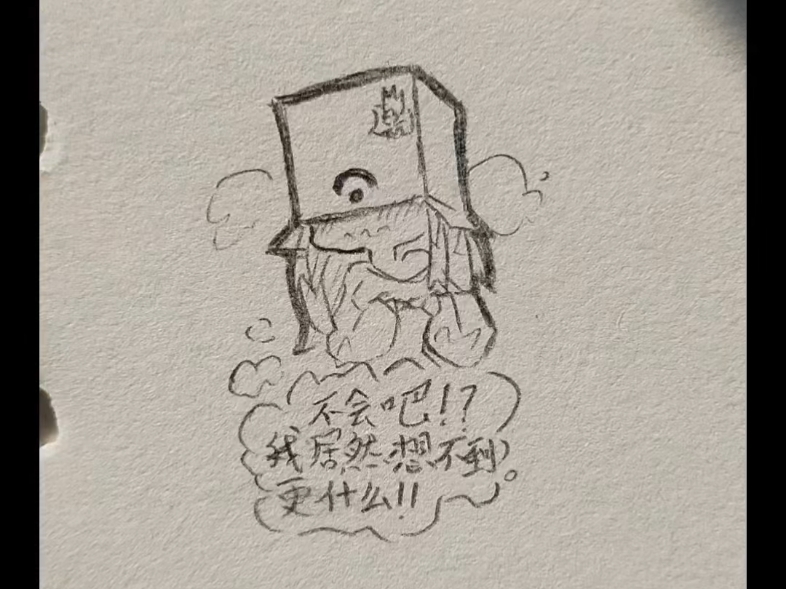 不会吧!?
我居然想不到
更什么!!